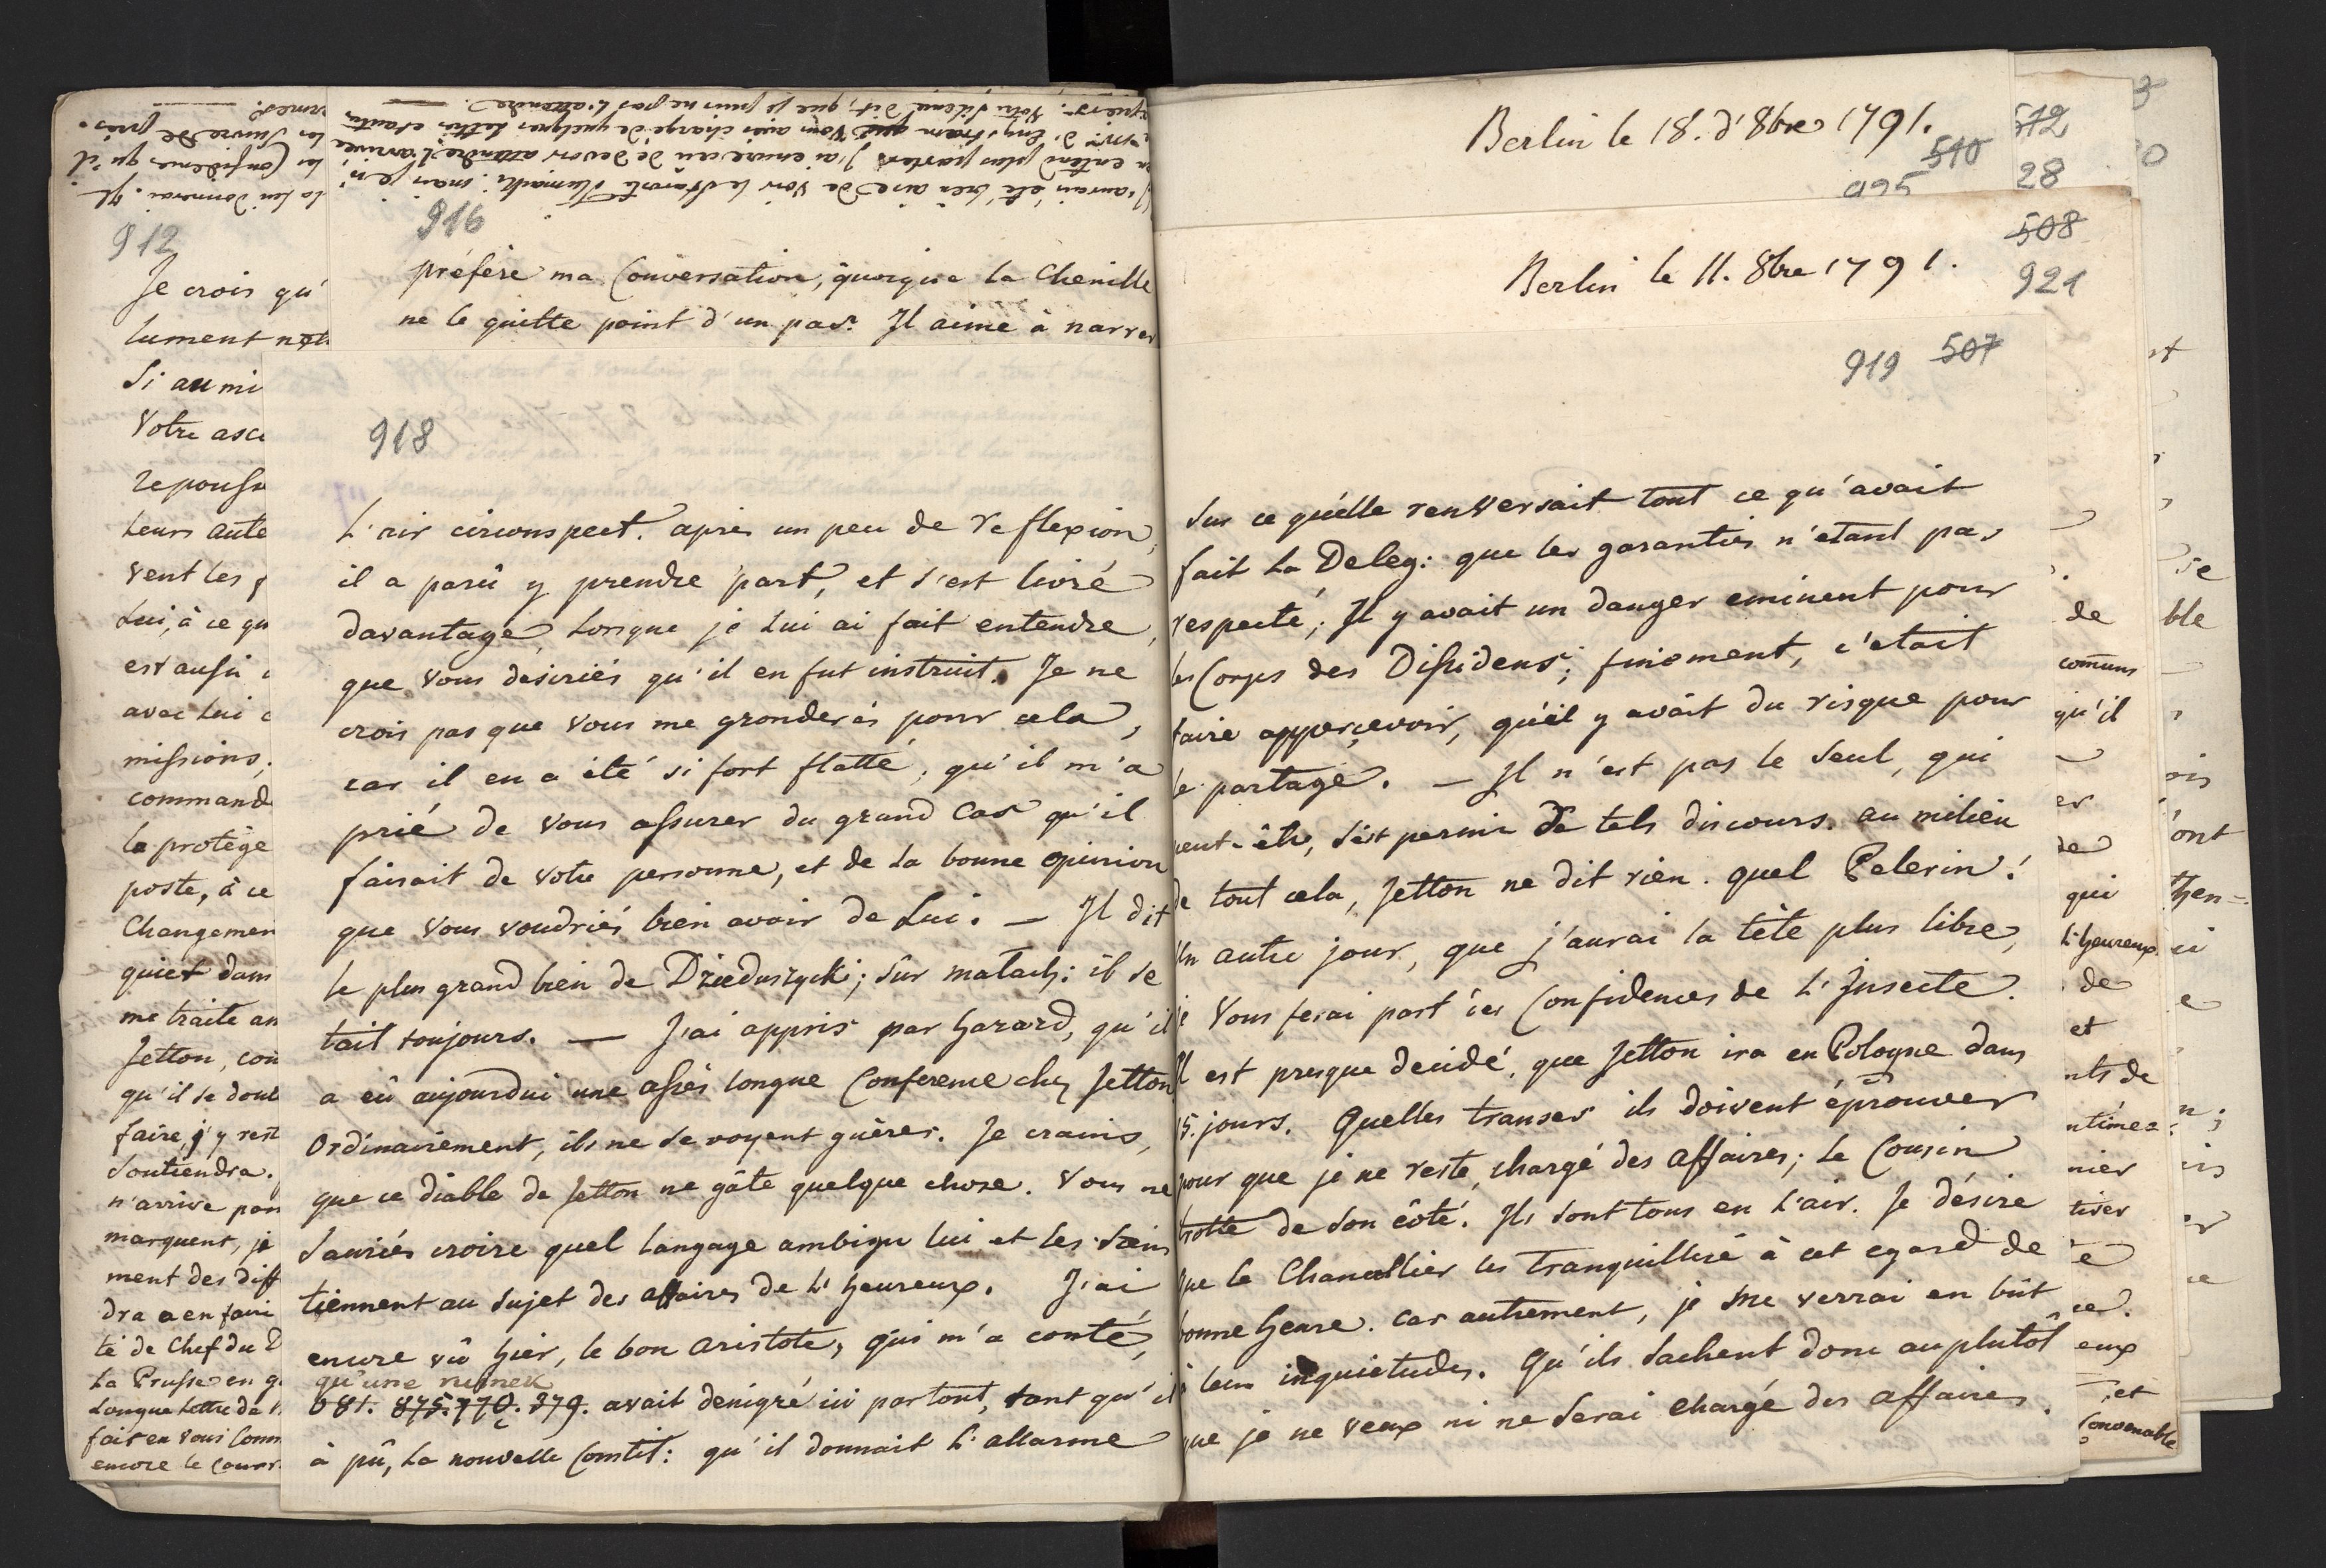 912
Je crois qu'
lument
Si au mi
Votre asc
repousse
leurs ante
vent les
Lui, à ce qu
est aussi
avec Lui
missions;
command
le protège
poste, à ce
Changemen
quiet dans
me traite
Jetton, con
qu'il se dout
faire, j'y rest
soutiendra.
n'arrive pas
marquent, je
ment des diff
dra a en faire
té de Chef du
La Prusse en g
Longue Lettre de
fait en vous Comm
encore le Cour
la lui donnerai. Il
la Confidence, qu'il
les suivre de près.
J'aurais été bien aise de voir le
en entend plus parler. J'ai encore cru devoir attendre l'arrivée
de Mr. d'Engstrom que vous aviez chargé de quelques Lettres
Votre silence dit, que je puis ne pas l'attendre.
916
préfère ma Conversation, quoique la Chenille
ne le quitte point d'un pas. Il aime à narrer
918
L'air circonspect. après un peu de reflexion,
il a parû y prendre part, et s'est livré
davantage, Lorsque je lui ai fait entendre,
que vous desiriés qu'il en fut instruit. Je ne
crois pas que vous me gronderés pour cela,
car il en a été si fort flatté, qu'il m'a
prié de vous assurer du grand Cas qu'il
faisait de votre personne, et de la bonne opinion
que vous voudriés bien avoir de Lui. — Il dit
le plus grand bien de Dzieduszycki; sûr malach: il se
tait toujours. — J'ai appris par hazard, qu'il
a eû aujourdui une assés longue Conference chez Jetton.
Ordinairement, ils ne se voyent guères. Je crains,
que ce diable de Jetton ne gâte quelque chose. Vous ne
sauriés croire quel langage ambigu lui et les siens
tiennent au sujet des affaires de L'heureux. J'ai
encore vû hier, le bon Aristote, qui m'a conté,
qu'une
681. 875. 770. 379. avait denigré ici partout, tant qu'il
à pû, la nouvelle Constit: qu'il donnait L'allarme
Berlin le 18. d'8bre 1791.
510
512
28
925
Berlin le 11. 8bre 1791.
508
921
919 507
sur ce qu'elle renversait tout ce qu'avait
fait la Deleg: que les garanties n'etant pas
respecté, Il y avait un danger eminent pour
les Corps des Dissidens; finement, c'etait
faire appercevoir, qu'il y avait du risque pour
le partage. — Il n'est pas le seul, qui
peut-être, s'est permis de tels discours. au milieu
de tout cela, Jetton ne dit rien. quel Pelerin!
Un autre jour, que j'aurai la tête plus libre,
je vous ferai part des Confidences de L'Insecte.
Il est presque decidé, que Jetton ira en Pologne dans
15. jours. Quelles transes ils doivent éprouver
pour que je ne reste chargé des affaires; le Cousin
trotte de son côté. Ils sont tous en L'air. Je désire
que le Chancellier les tranquillise à cet egard de
bonne heure. car autrement, je me verrai en bût
à leurs inquietudes. Qu'ils sachent donc au plutôt
que je ne veux ni ne serai chargé des affaires.
de
communs
qu'il
er
de
qui
L'heureux
de
et
nts de
ntimes
nier
tiser
ce.
eux
et
Convenable
3
0
se
ble
ois
ont
then=
ci
e